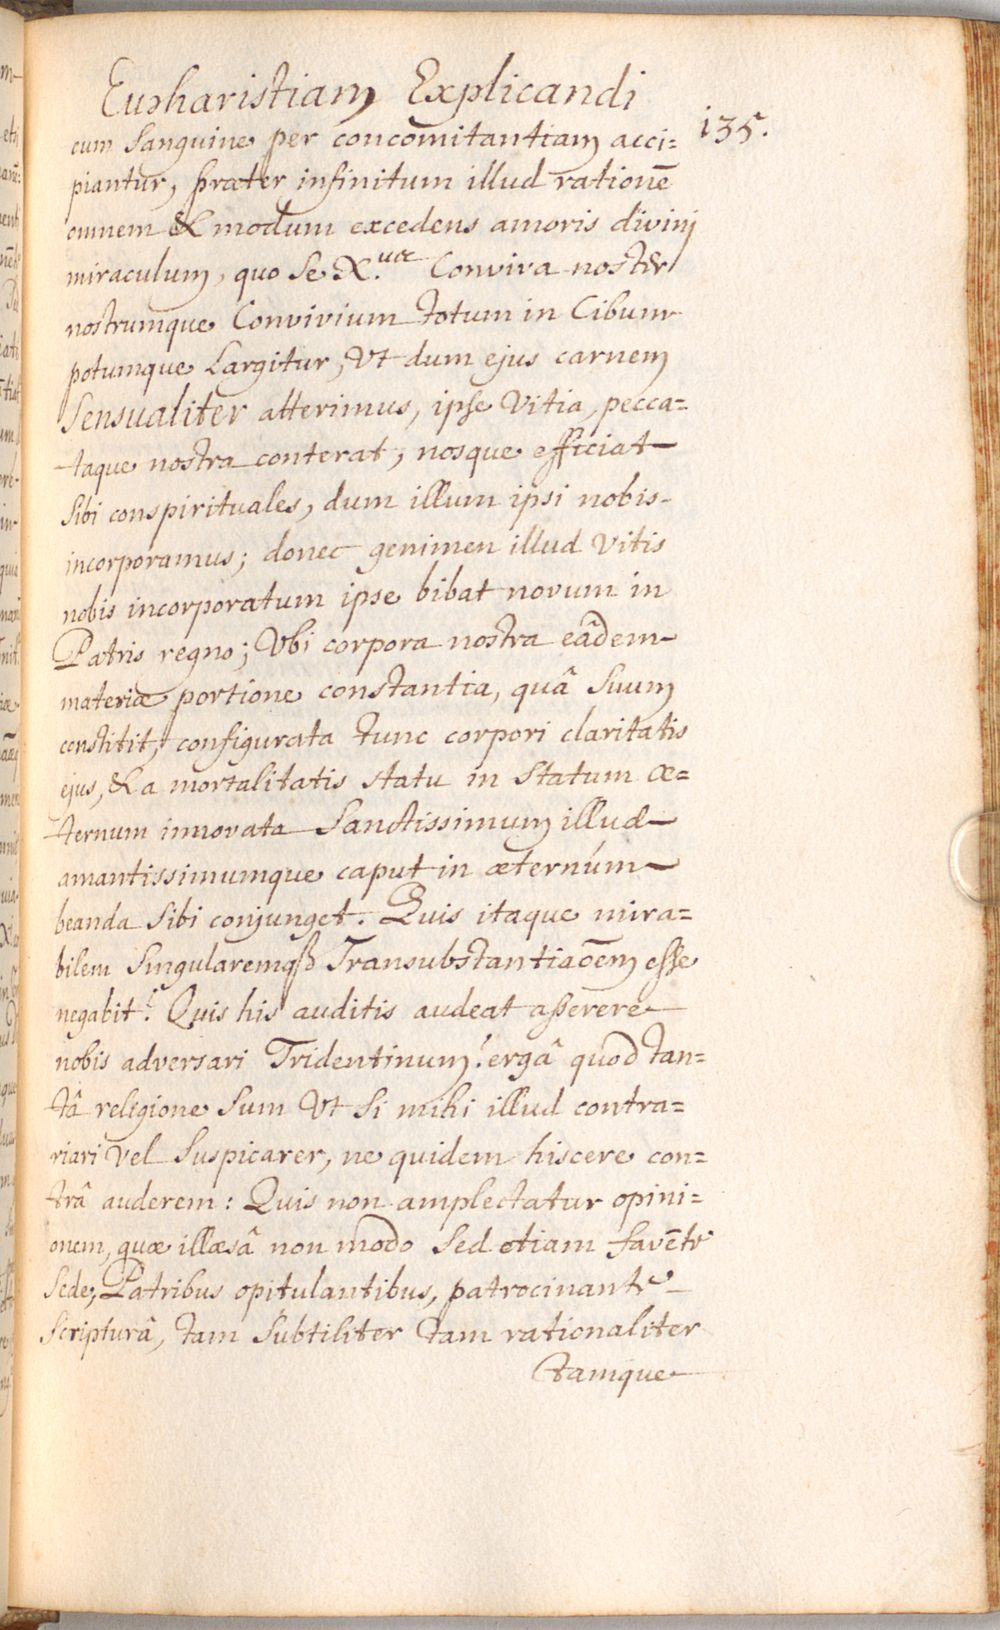 Eucharistiam Explicandi
135.
cum Sanguine per concōmitantiam acci=
piantur, præter infinitum illud rationē
omnem & modum excedens amoris divini
miraculum, quo se X.us Conviva noster
nostrumque Convivium totum in Cibum
potumque Largitur, Vt dum ejus carnem
Sensualiter atterimus, ipse Vitia, pecca=
taque nostra conterat, nosque efficiat
Sibi conspirituales, dum illum ipsi nobis
incorporamus; donec genimen illud Vitis
nobis incorporatum ipse bibat novum in
Patris regno; Vbi corpora nostra eâdem
materiæ portione constantia, quâ Suum
constitit, configurata tunc corpori claritatis
ejus, & a mortalitatis statu in Statum æ=
ternum innovata Sanctissimum illud
amantissimumque caput in æternúm
beanda Sibi conjunget. Quis itaque mira=
bilem Singularemqß Transubstantiaōem esse
negabit? Quis his auditis audeat asserere
nobis adversari Tridentinum? ergâ quod tan=
tâ religione Sum Vt Si mihi illud contra=
riari Vel Suspicarer, ne quidem hiscere con=
trâ auderem: Quis non amplectatur opini=
onem, quæ illæsâ non modo Sed etiam favēte
Sede, Patribus opitulantibus, patrocinante
Scripturâ, tam Subtiliter tam rationaliter
tamque